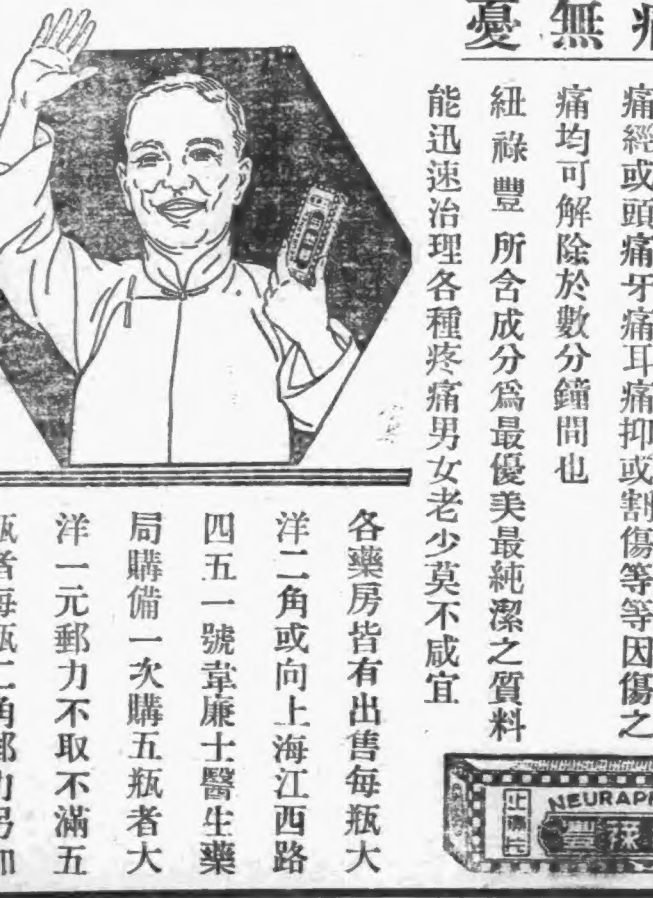 無憂
痛經或頭痛牙痛耳痛抑或割傷等等因傷之
痛均可解除於數分鐘間也
紐祿豐所含成分爲最優美最純潔之質料
能迅速治理各種疼痛男女老少莫不咸宜
各藥房皆有出售每瓶大
洋二角或向上海江西路
四五一號韋廉士醫生藥
局購備一次購五瓶者大
洋一元郵力不取不滿五
瓶者每瓶二角郵力另加
NEURAPH
止痛片
祿豐